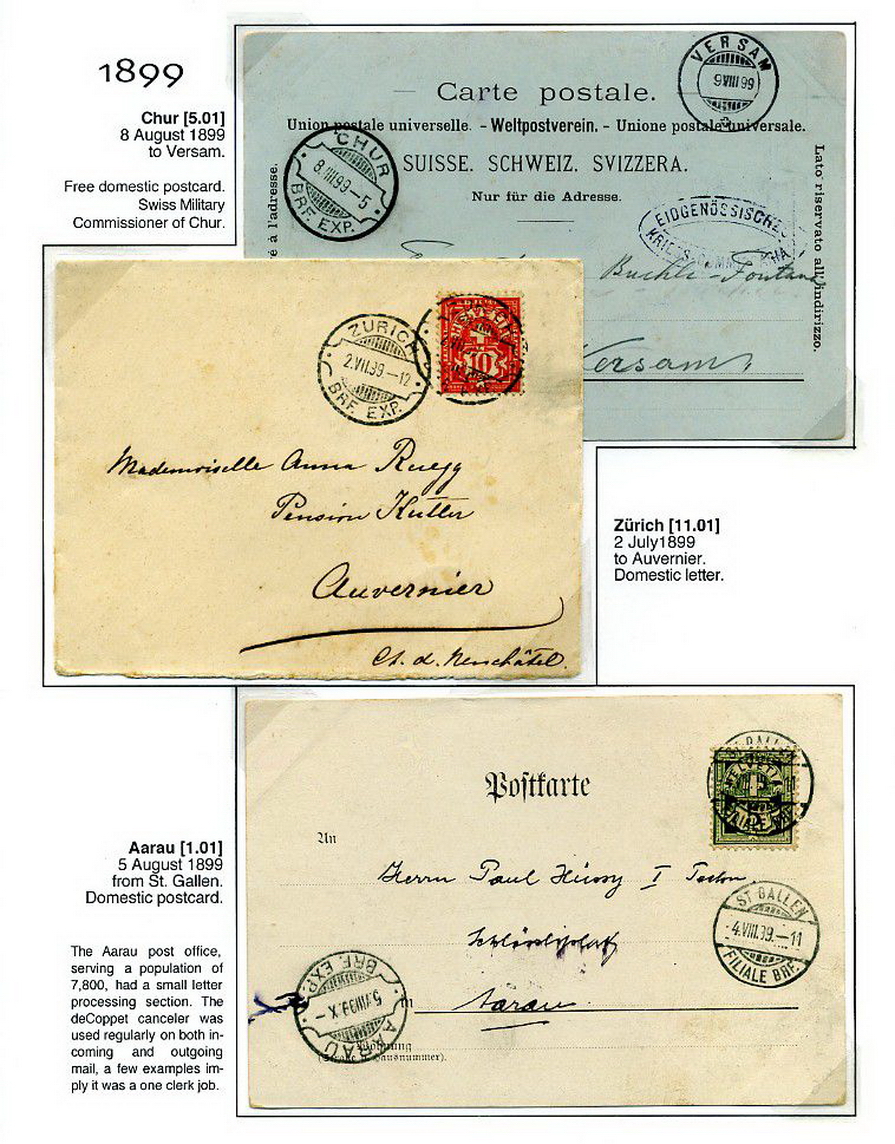 1899
Chur [5.01]
8 August 1899
to Versam.
Free domestic postcard.
Swiss Military
Commissioner of Chur.
VERSAM
9 VIII 99
Carte postale.
Union postale universelle. - Weltpostverein. - Unione postale universale.
CHUR
8.III.99-5
BRF. EXP.
SUISSE. SCHWEIZ. SVIZZERA.
Nur für die Adresse.
é à l'adresse.
Lato riservato all'indirizzo.
EIDGENÖSSISCHES
Buchli-Fontana
Versam
ZÜRICH
2.VII.99-12
BRF. EXP.
10
Mademoiselle Anna Ruegg
Pension Kutter
Auvernier
Ct. d. Neuschâtel.
Zürich [11.01]
2 July1899
to Auvernier.
Domestic letter.
Postkarte
ST. GALLEN
HELVETIA
An
Herrn Paul Hüssy I
Aarau
ST. GALLEN
4.VIII.99.-11
FILIALE BRF.
AARAU
5.VIII99.X-
BRF. EXP.
in
Wohnung
(Straße u. Hausnummer).
Aarau [1.01]
5 August 1899
from St. Gallen.
Domestic postcard.
The Aarau post office,
serving a population of
7,800, had a small letter
processing section. The
deCoppet canceler was
used regularly on both in-
coming and outgoing
mail, a few examples im-
ply it was a one clerk job.